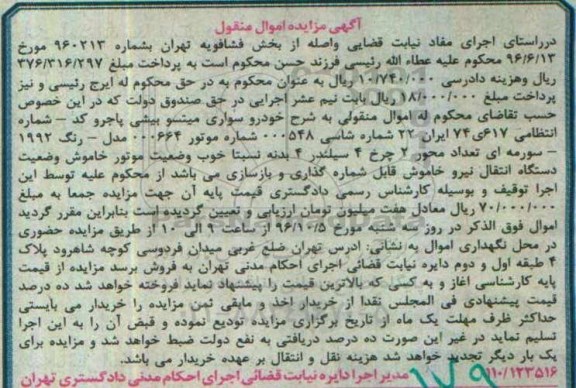 آگهی مزایده اموال منقول
درراستای اجرای مفاد نیابت قضایی واصله از بخش فشافویه تهران بشماره ۹۶۰۲۱۳ مورخ
۹۶/۶/۱۳ محکوم علیه عطاء الله رئیسی فرزند حسن محکوم است به پرداخت مبلغ ۳۷۶/۳۱۶/۲۹۷
ریال وهزینه دادرسی ۱۰/۷۴۰/۰۰۰ ریال به عنوان محکوم به در حق محکوم له ایرج رئیسی و نیز
پرداخت مبلغ ۱۸/۰۰۰/۰۰۰ ریال بابت نیم عشر اجرایی در حق صندوق دولت که در این خصوص
حسب تقاضای محکوم له اموال منقولی به شرح خودرو سواری میتسو بیشی پاجرو کد – شماره
انتظامی ۶۱۷ی۷۴ ایران ۲۲ شماره شاسی ۰۰۰۵۴۸ شماره موتور ۰۰۰۶۶۴ مدل – رنگ ۱۹۹۲
– سورمه ای تعداد محور ۲ چرخ ۴ سیلندر ۴ بدنه نسبتا خوب وضعیت موتور خاموش وضعیت
دستگاه انتقال نیرو خاموش قابل شماره گذاری و بازسازی می باشد از محکوم علیه توسط این
اجرا توقیف و بوسیله کارشناس رسمی دادگستری قیمت پایه آن جهت مزایده جمعا به مبلغ
۷۰/۰۰۰/۰۰۰ ریال معادل هفت میلیون تومان ارزیابی و تعیین گردیده است بنابراین مقرر گردید
اموال فوق الذکر در روز سه شنبه مورخ ۹۶/۱۰/۵ از ساعت ۹ الی ۱۰ از طریق مزایده حضوری
در محل نگهداری اموال به نشانی: ادرس تهران ضلع غربی میدان فردوسی کوچه شاهرود پلاک
۴ طبقه اول و دوم دایره نیابت قضائی اجرای احکام مدنی تهران به فروش برسد مزایده از قیمت
پایه کارشناسی اغاز و به کسی که بالاترین قیمت را پیشنهاد نماید فروخته خواهد شد ده درصد
قیمت پیشنهادی فی المجلس نقدا از خریدار اخذ و مابقی ثمن مزایده را خریدار می بایستی
حداکثر ظرف مهلت یک ماه از تاریخ برگزاری مزایده تودیع نموده و قبض آن را به این اجرا
تسلیم نماید در غیر این صورت ده درصد دریافتی به نفع دولت ضبط خواهد شد و مزایده برای
یک بار دیگر تجدید خواهد شد هزینه نقل و انتقال بر عهده خریدار می باشد.
۱۱۰/۱۲۳۵۱۶ مدیر اجرا دایره نیابت قضائی اجرای احکام مدنی دادگستری تهران
۱۷۹